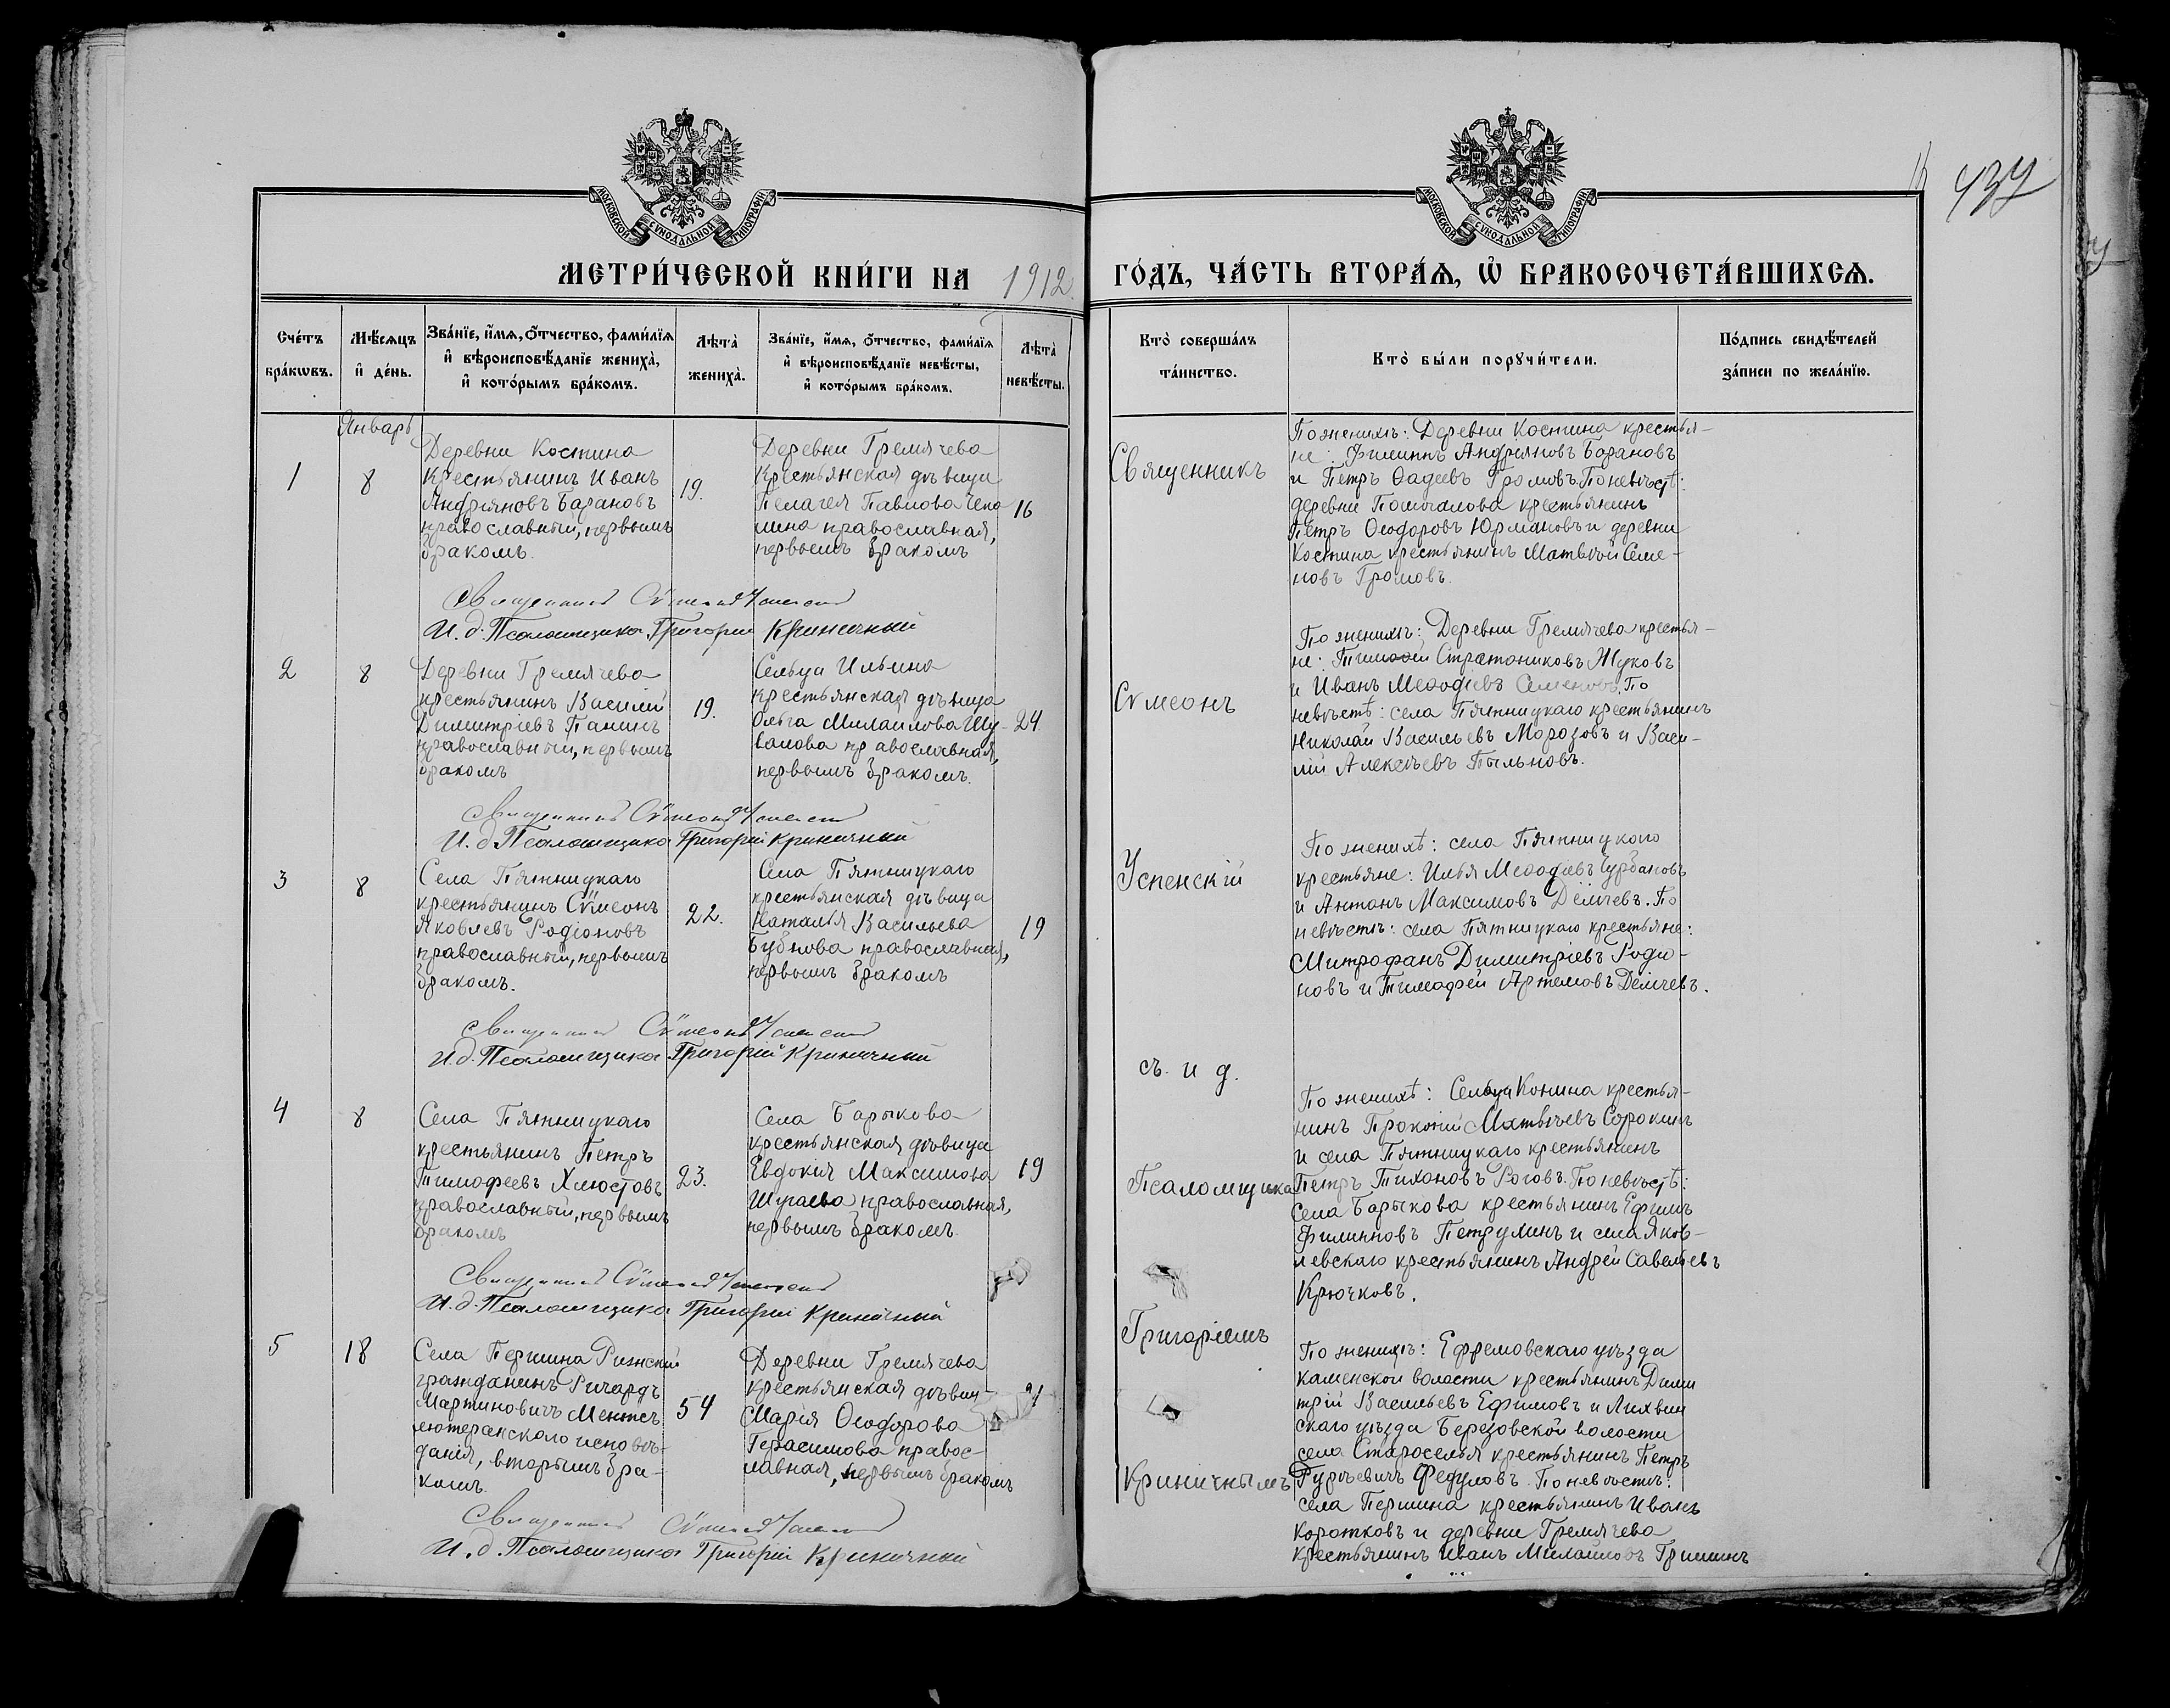 437
МОСКОВСКОЙ СѴНОДАЛЬНОЙ ТИПОГРАФІИ
МОСКОВСКОЙ СѴНОДАЛЬНОЙ ТИПОГРАФІИ
МЕТРИ́ЧЕСКОЙ КНИ́ГИ НА 1912.
ГО́ДЪ, ЧА́СТЬ ВТОРА́Ѧ, Ѽ БРАКОСОЧЕТА́ВШИХСѦ.
Сче́тъ бра́кѡвъ.
Мѣ́сѧцъ и҆ де́нь.
Зва́нїе, и҆́мѧ, ѻ҆́тчество, фами́лїѧ
и҆ вѣроисповѣ́данїе жениха̀,
и҆ кото́рымъ бра́комъ.
Лѣта̀ жениха̀.
Зва́нїе, и҆́мѧ, ѻ҆́тчество, фами́лїѧ
и҆ вѣроисповѣ́данїе невѣ́сты,
и҆ кото́рымъ бра́комъ.
Лѣта̀ невѣ́сты.
Кто̀ соверша́лъ
та́инство.
Кто̀ бы́ли порꙋчи́тели.
По́дпись свидѣ́телей
за́писи по жела́нїю.
Январь
1
8
Деревни Костина
крестьянинъ Иванъ
Андріяновъ Барановъ
православный, первымъ
бракомъ.
19.
Деревни Гремячева
крестьянская дѣвица
Пелагея Павлова
православная,
первымъ бракомъ
16
Священникъ
По женихѣ: Деревни Костина крестья-
не: Филиппъ Андріяновъ Барановъ
и Петръ Ѳадеевъ Громовъ По невѣстѣ:
деревни крестьянинъ
Петръ Ѳеодоровъ Юрмановъ и деревни
Костина крестьянинъ Матвѣй Семе-
новъ Громовъ.
Священникъ Сѵмеонъ Успенскій
И.д. Псаломщика Григорій Криничный
2
8
Деревни Гремячева
крестьянинъ Василій
Димитріевъ Панинъ
православный, первымъ
бракомъ
19.
Сельца Ильина
крестьянская дѣвица
Ольга Михаилова Шу-
валова православная,
первымъ бракомъ.
24.
Сѵмеонъ
По женихѣ: Деревни Гремячева крестья-
не: Стратониковъ Жуковъ
и Иванъ Меѳодіевъ Семеновъ. По
невѣстѣ: села Пятницкаго крестьянинъ
Николай Васильевъ Морозовъ и Васи-
лій Алексѣевъ Пыльновъ.
Священникъ Сѵмеонъ Успенскій
И.д. Псаломщика Григорій Криничный
3
8
Села Пятницкаго
крестьянинъ Сѵмеонъ
Яковлевъ Родіоновъ
православный, первымъ
бракомъ.
22.
Села Пятницкаго
крестьянская дѣвица
Наталья Васильева
Бубнова православная,
первымъ бракомъ
19
Успенскій
По женихѣ: села Пятницкаго
крестьяне: Илья Меѳодіевъ Чурбановъ
и Антонъ Максимовъ Дёмчевъ. По
невѣстѣ: села Пятницкаго крестьяне:
Митрофанъ Димитріевъ Родіо-
новъ и Тимофей Артемовъ Дёмчевъ.
Священникъ Сѵмеонъ Успенскій
И.д. Псаломщика Григорій Криничный
съ и д.
4
8
Села Пятницкаго
крестьянинъ Петръ
Тимофеевъ Хлюстовъ
православный, первымъ
бракомъ
23.
Села Барыкова
крестьянская дѣвица
Евдокія Максимова
Шугаева православная,
первымъ бракомъ.
19
Псаломщика
По женихѣ: Сельца Конина крестья-
нинъ Прокопій Матвѣевъ Сорокинъ
и села Пятницкаго крестьянинъ
Петръ Тихоновъ Роговъ. По невѣстѣ:
села Барыкова крестьянинъ Ефимъ
Филипповъ Петрухинъ и села Яков-
левскаго крестьянинъ Андрей Савельевъ
Крючковъ.
Священникъ Сѵмеонъ Успенскій
И.д. Псаломщика Григорій Криничный
Григоріемъ
5
18
Села Першина Рижскій
гражданинъ Ричардъ
Мартиновичъ Ментель
лютеранскаго исповѣ-
данія, вторымъ бра-
комъ.
54
Деревни Гремячева
крестьянская дѣвица
Марія Ѳеодорова
Герасимова правос-
лавная, первымъ бракомъ
Криничнымъ
По женихѣ: Ефремовскаго уѣзда
каменской волости крестьянинъ Дими
трій Васильевъ Ефимовъ и Лихвин
скаго уѣзда Березовской волости
села Староселья крестьянинъ Петръ
Гурьевичъ Федуловъ. По невѣстѣ:
села Першина крестьянинъ Иванъ
Коротковъ и деревни Гремячева
крестьянинъ Иванъ Михаиловъ Гришинъ
Священникъ Сѵмеонъ Успенскій
И.д. Псаломщика Григорій Криничный